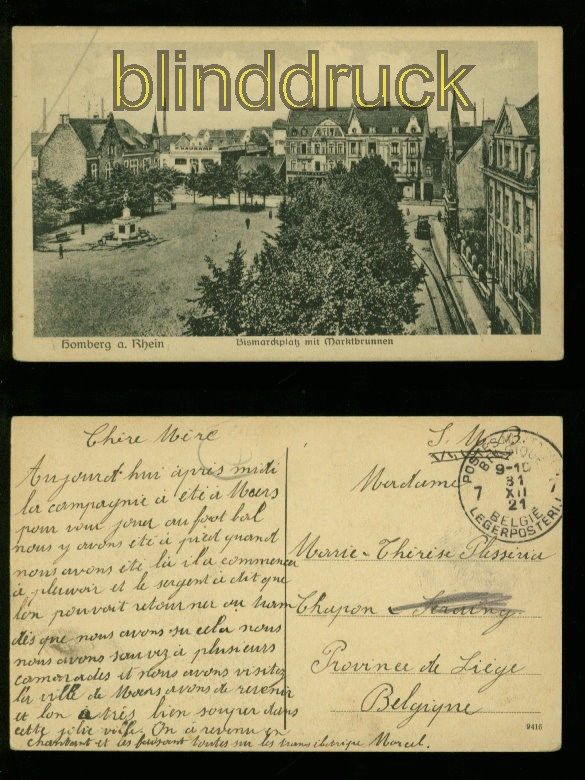 blinddruck
Homberg a. Rhein
Bismarckplatz mit Marktbrunnen
Chère Mère
Aujourd'hui après midi
la compagnie à été à Moers
pour voir jouer au foot bal
nous y avons été à pied quand
nous avons été là il a commencer
à pleuvoir et le sergent à dit que
l'on pouvait retourner au tram
dès que nous avons su cela nous
nous avons sauvez à plusieurs
camarades et nous avons visitez
la ville de Moers avans de revenir
et l'on a très bien souper dans
cette jolie ville. On à revenu en
chantant et les faisant toutes sur les trams électrique Marcel.
S. M. B.
Madame
POSTES MILITAIRES
BELGIQUE
9-10
31
XII
21
7 7
BELGIË
LEGERPOSTERIJ
Marie-Thérèse
Chapon Seraing
Province de Liège
Belgique
9416